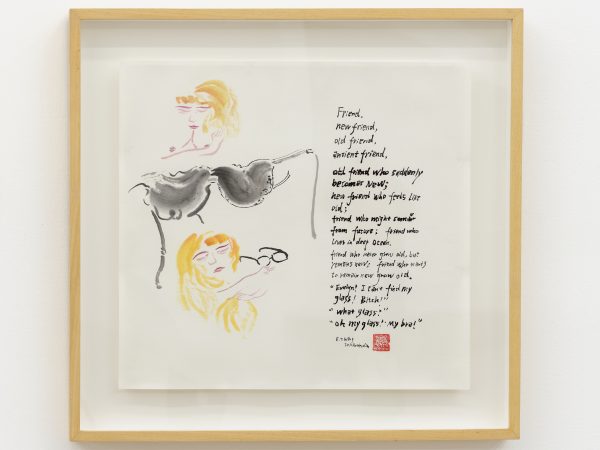 Friend,
new friend,
old friend,
ancient friend,
old friend who suddenly
becomes New;
new friend who feels like
old;
friend who might
from future; friend who
lives in deep ocean.
friend who never grow old, but
remains new; friend who wants
to remain new grow old.
"Evelyn! I can't find my
glass! Bitch!"
"what glass?"
"oh my glass! My bra!"